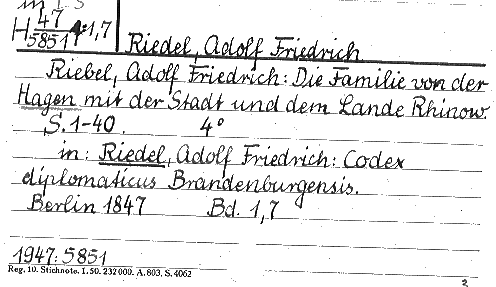 H 47/5851 1,7
Riedel, Adolf Friedrich
Riebel, Adolf Friedrich: Die Familie von der
Hagen mit der Stadt und dem Lande Rhinow.
S. 1-40. 4°
in: Riedel, Adolf Friedrich: Codex
diplomaticus Brandenburgensis.
Berlin 1847 Bd. 1,7
1947:5851
Reg. 10. Stichnote. I. 50. 232000. A. 803. S. 4062
2